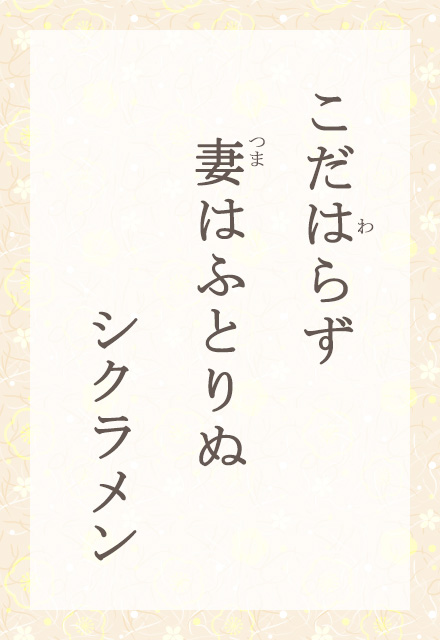 こだはらず
わ
妻はふとりぬ
つま
シクラメン